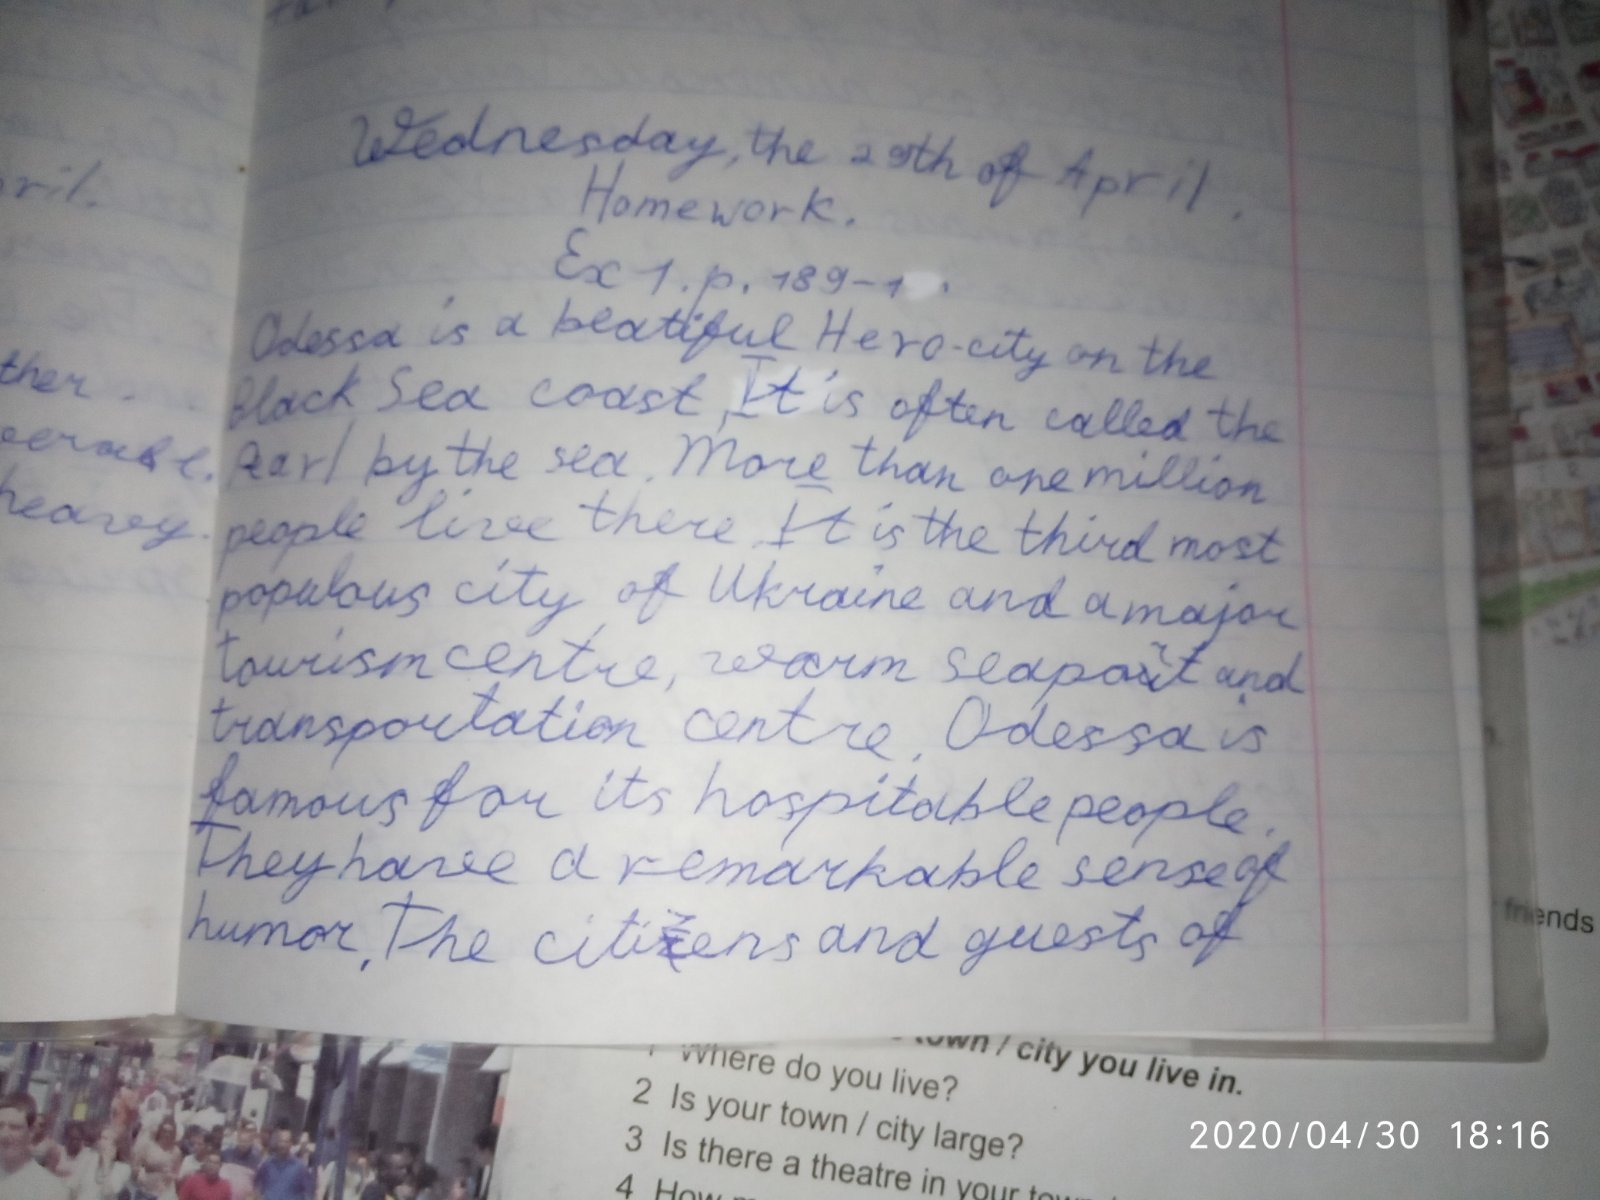 Wednesday, the 29th of April.
Homework.
Ex 1. p. 189-1
Odessa is a beatiful Hero-city on the
Black Sea coast, It is often called the
by the sea. More than one million
people live there. It is the third most
populous city of Ukraine and a major
tourism centre, warm seaport and
transportation centre. Odessa is
famous for its hospitable people.
They have a remarkable sense of
humor, The citizens and guests of
ril.
ther
heavy.
friends
town / city you live in.
1 Where do you live?
2 Is your town / city large?
3 Is there a theatre in your town
4 How
2020/04/30 18:16